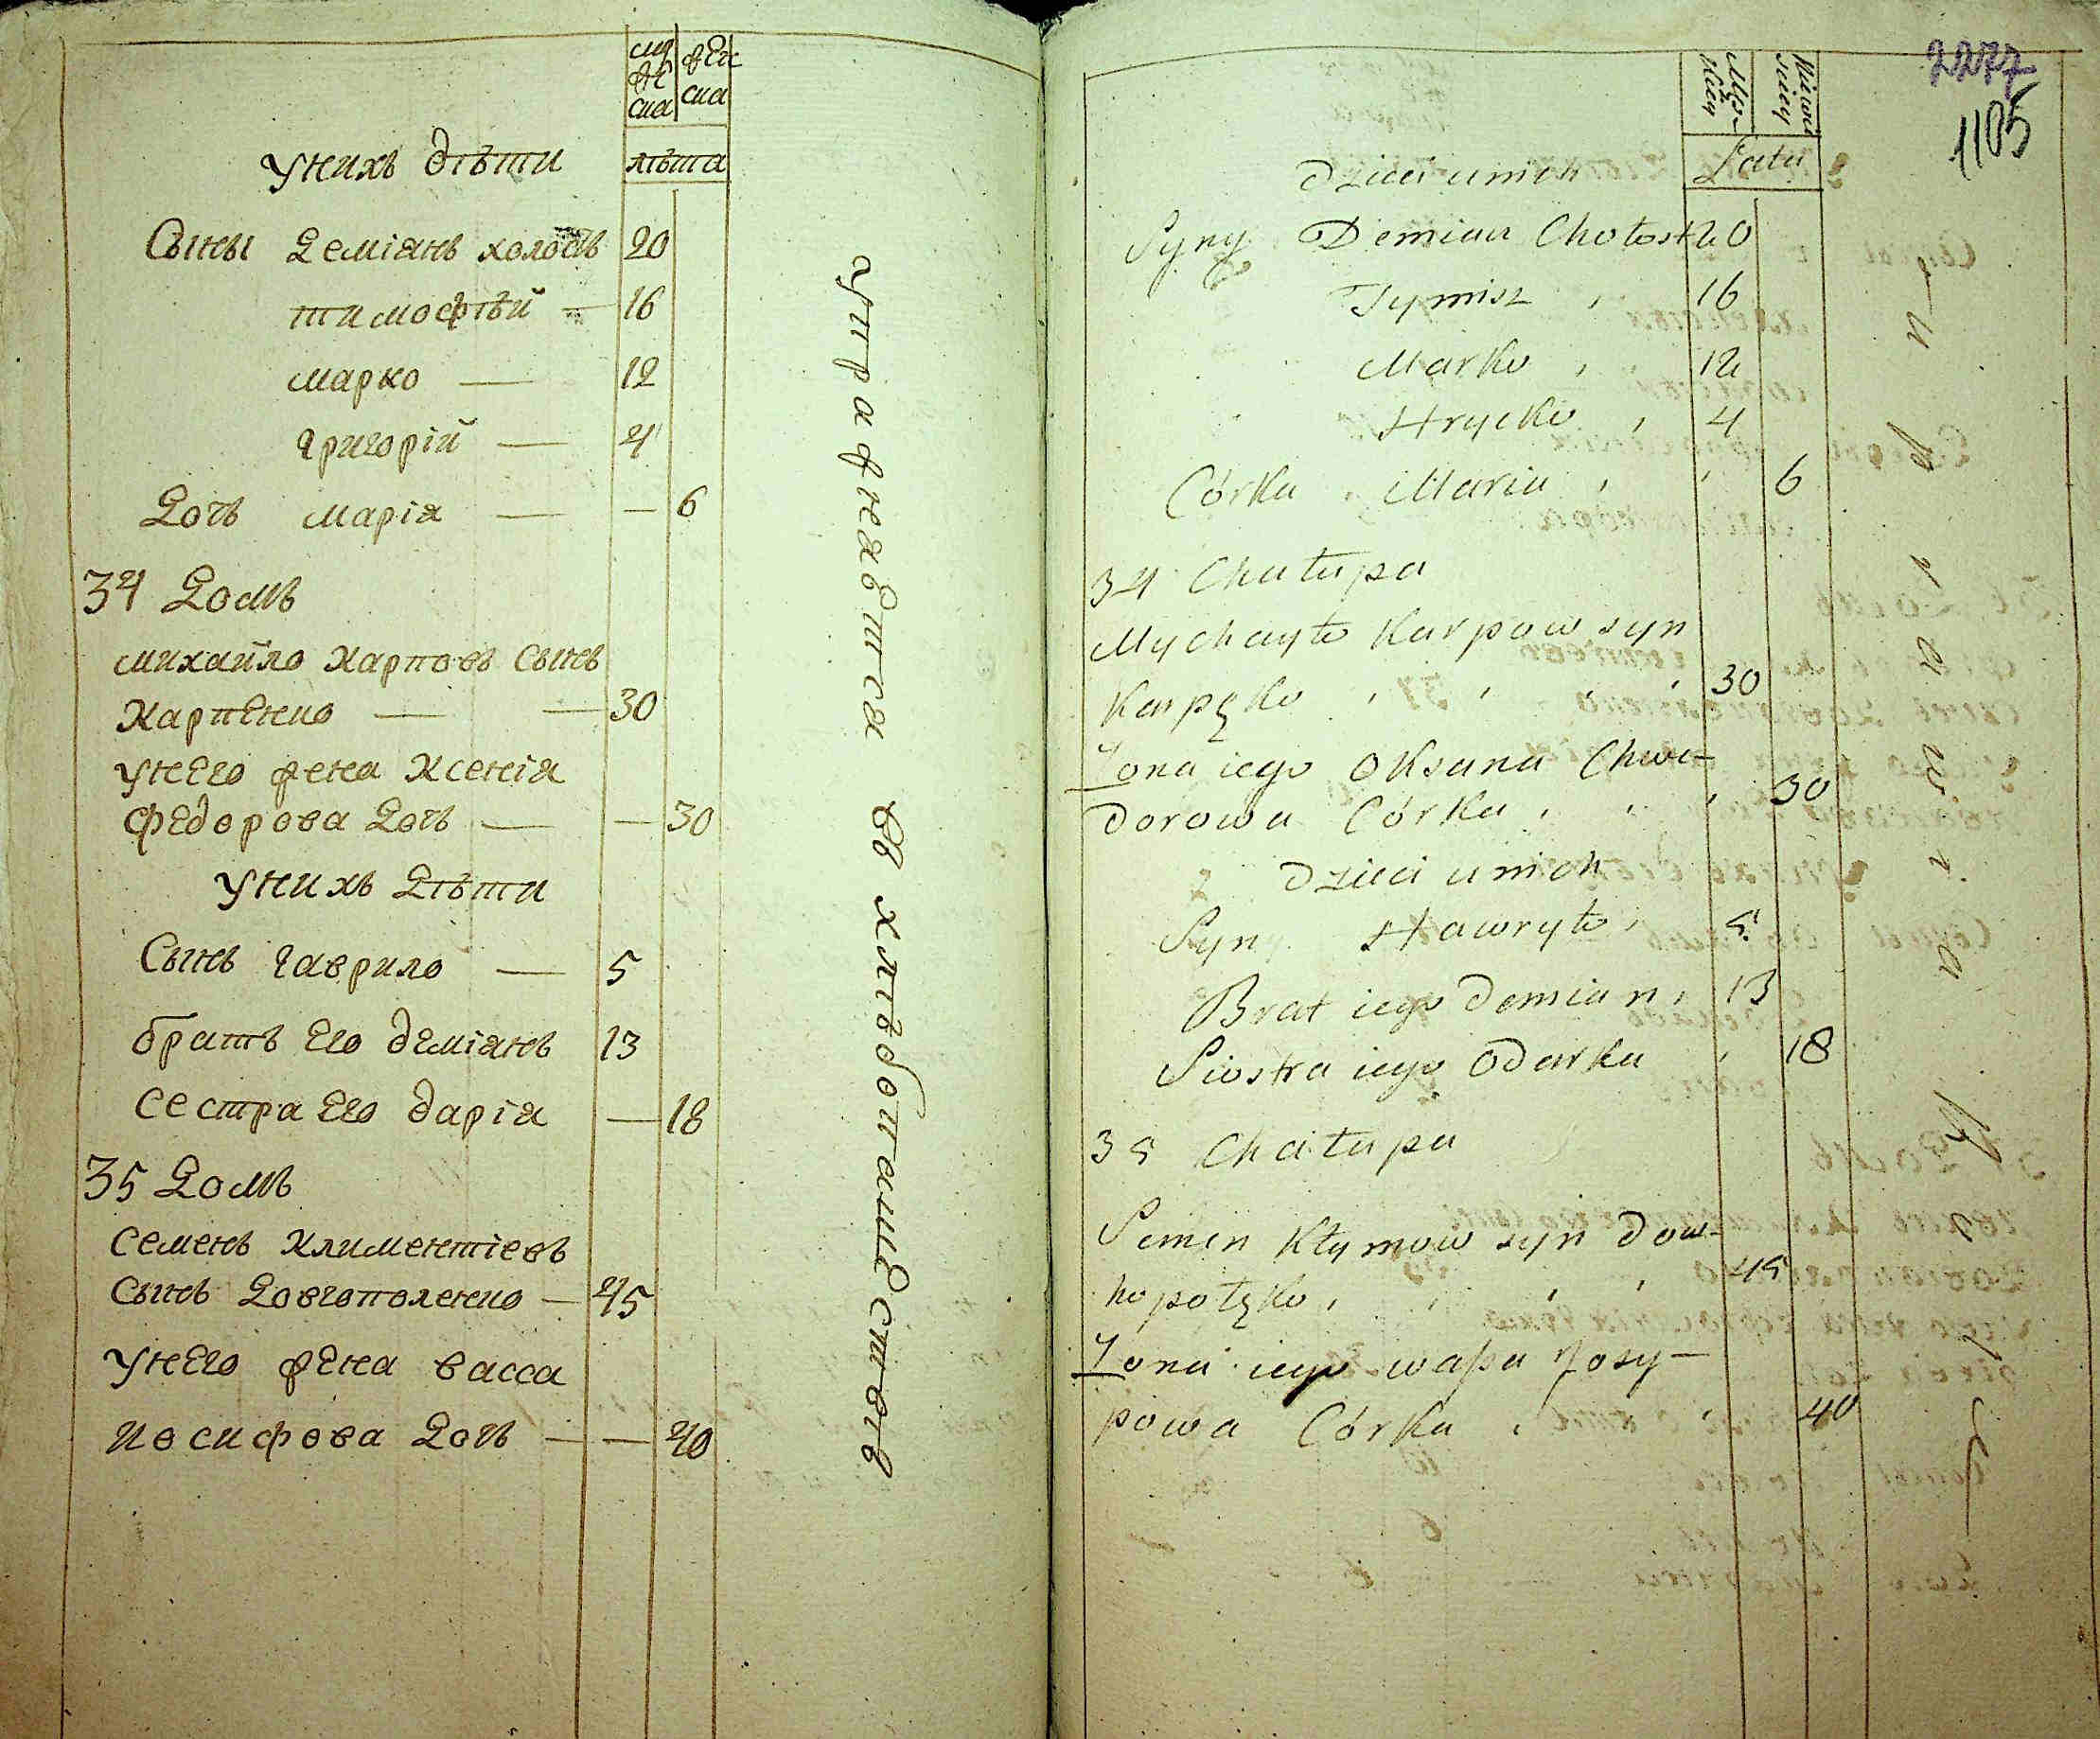 муже ска
жен ска
лѣта
у нихъ дѣти
Сыны Деміянъ холостъ 20
тимофѣй — 16
марко — 12
григорій — 4
Дочь марія — — 6
34 Домъ
михайло Карповъ Сынъ
Карпенко — — 30
у него жена Ксенія
федорова Дочь — — 30
у нихъ Дѣти
Сынъ гаврило — 5
братъ его деміянъ 13
сестра его дарія — 18
35 Домъ
семенъ Климентіевъ
сынъ Довгополенко — 45
у него жена васса
иосифова Дочь — — 40
упражняется въ хлѣбопашествѣ
2277
1105
Lata
Dzieci u nich
Syny Demian Chołost 20
Tymisz 16
Marko 12
Hrycko 4
Córka Maria 6
34 Chałupa
Mychayło Karpow syn
Karpęko 30
Żona iego Oksana Chwe-
dorowa Córka 30
Dzieci u nich
Syn Hawryło 5
Brat iego Demian 13
Siostra iego Odarka 18
35 Chałupa
Semen Kłymow syn Dow-
hopołęko 45
Żona iego Wassa Josy-
powa Córka 40